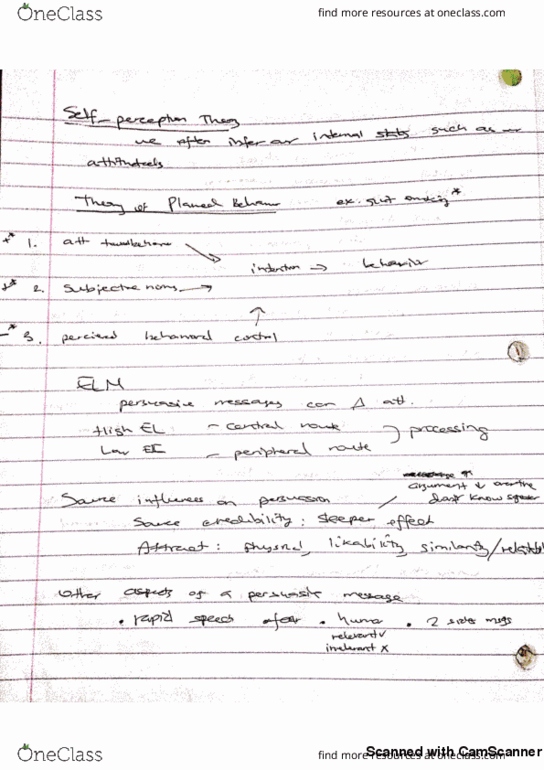 OneClass find more resources at oneclass.com
Self-perception Theory
we often infer our internal states such as
Theory of Planned Behaviour ex. quit smoking*
* 1. att
intention → behavior
* 2. Subjective norms →
* 3. percieved behavioral control
ELM
persuasive messages can Δ att.
High EL - central route
processing
Low El - peripheral route
argument ↓
Source influences on persuasion / don't know
Source credibility: sleeper effect
Attract: physical, likability, similarity/
Other aspects of a persuasive message
• rapid speech • • 2 sided msgs
relevant ✓
irrelevant x
Scanned with CamScanner
OneClass find more resources at oneclass.com